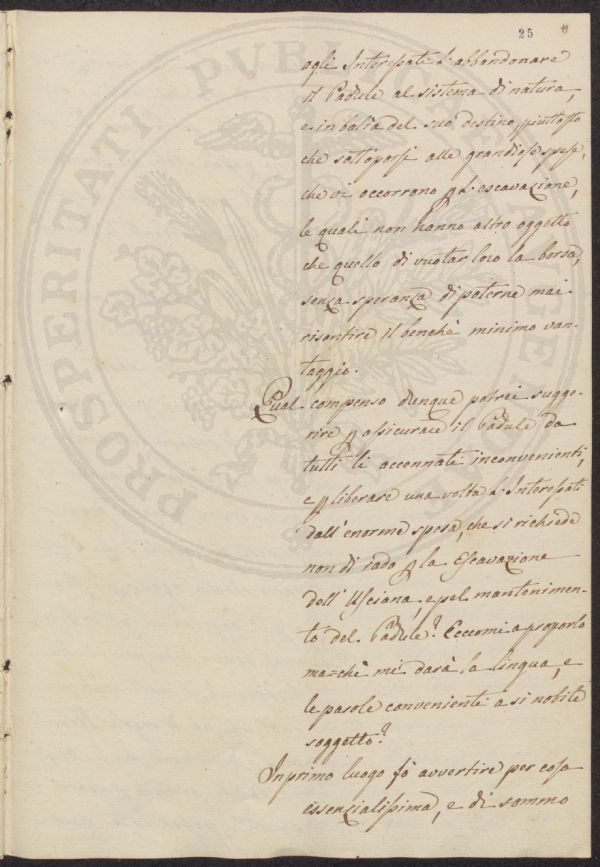 25
agli Interessati l'abbandonare
il Padule al sistema di natura,
e in balìa del suo destino, piutosto
che sottoporsi alle grandiose spese,
che vi occorrono p l'escavazione,
le quali non hanno altro oggetto
che quello di vuotar loro la borsa,
senza speranza di poterne mai
risentire il benchè minimo van-
taggio.
Qual compenso dunque potrei sugge-
rire p assicurare il Padule da
tutti li accennati inconvenienti,
e p liberare una volta l'Interessati
dall'enorme spesa, che si richiede
non di rado p la Escavazione
dell'Usciana, e pel mantenimen-
to del Padule? Eccomi a proporlo
ma chè mi darà la lingua, e
le parole conveniente a si nobile
soggetto?
In primo luogo fò avvertire per cosa
essenzialissima, e di sommo
PROSPERITATI PUBLICAE